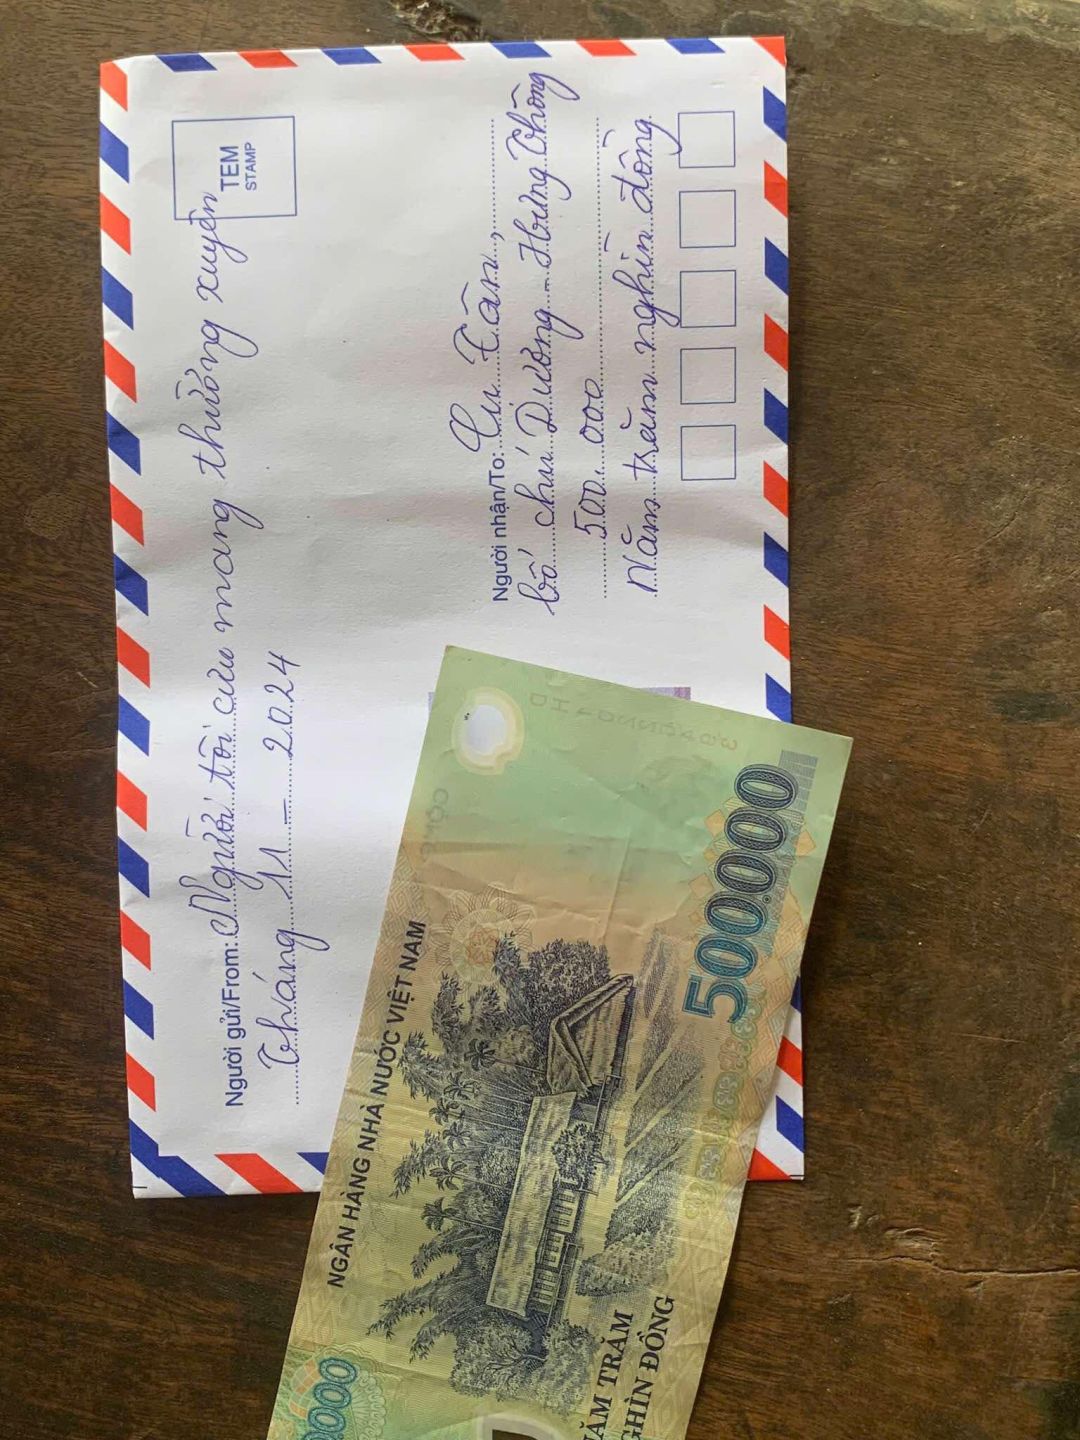 TEM
STAMP
Người gửi/From: Người tôi cưu mang thường xuyên
Tháng 11 - 2024
Người nhận/To: Cu Tân,
bố chú Dương - Hưng Thông
500.000
Năm trăm nghìn đồng
NGÂN HÀNG NHÀ NƯỚC VIỆT NAM
500.000
NĂM TRĂM
NGHÌN ĐỒNG